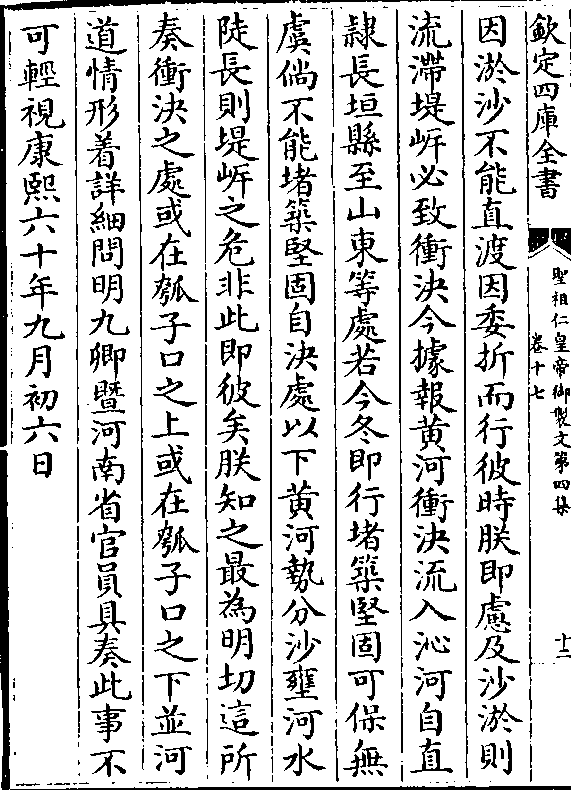 欽定四庫全書
聖祖仁皇帝御製文第四集
卷十七
十二
因淤沙不能直渡因委折而行彼時朕即慮及沙淤則
流滯堤岍必致衝決今據報黄河衝決流入沁河自直
隷長垣縣至山東等處若今冬即行堵築堅固可保無
虞倘不能堵築堅固自決處以下黄河勢分沙壅河水
陡長則堤岍之危非此即彼矣朕知之最為明切這所
奏衝決之處或在瓠子口之上或在瓠子口之下並河
道情形着詳細問明九卿暨河南省官員具奏此事不
可輕視康熙六十年九月初六日